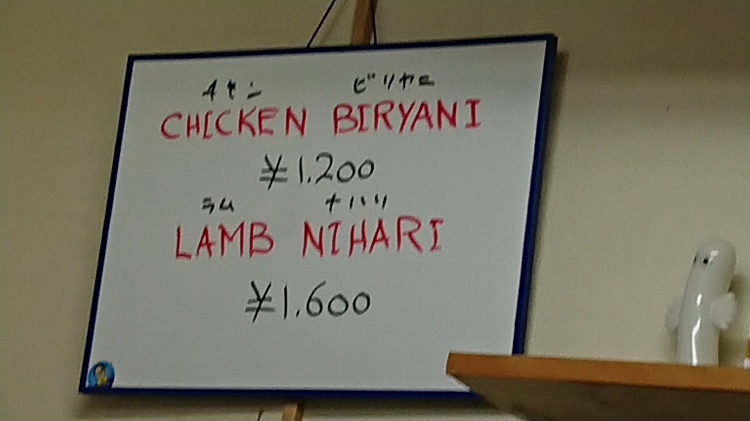 チキン ビリヤニ
CHICKEN BIRYANI
¥1.200
ラム ナハリ
LAMB NIHARI
¥1.600